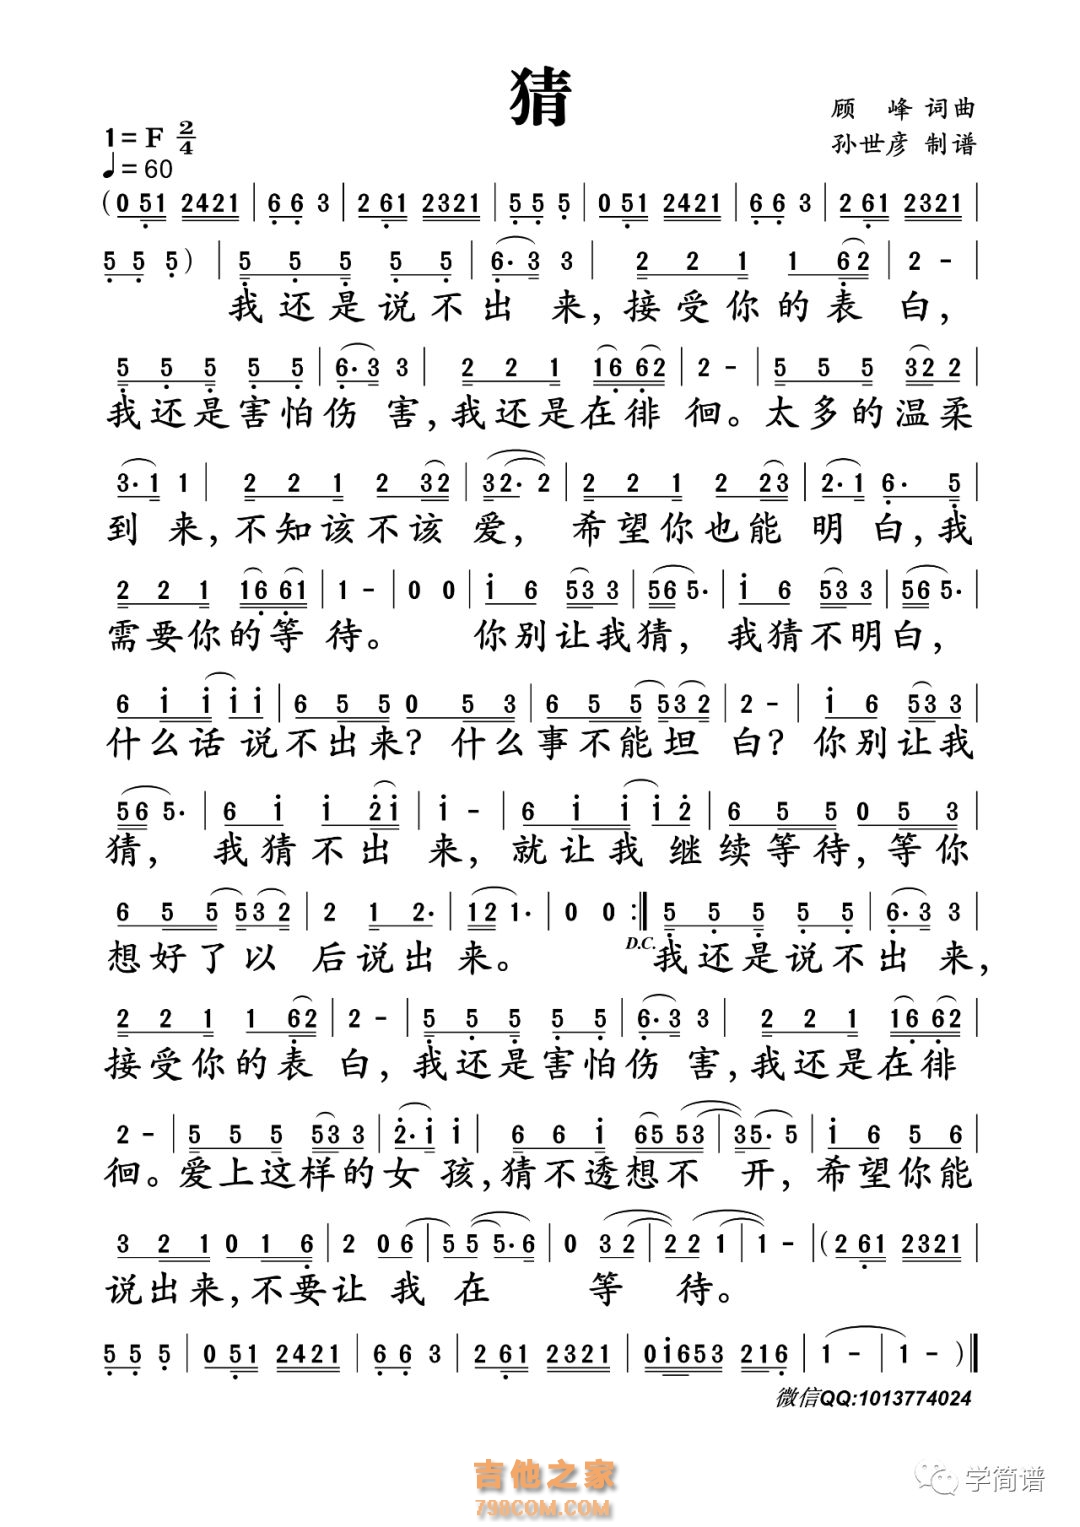 猜
顾 峰 词曲
1=F 2/4
孙世彦 制谱
♩=60
(0 51 2421 | 6 6 3 | 2 61 2321 | 5 5 5 | 0 51 2421 | 6 6 3 | 2 61 2321 |
5 5 5) | 5 5 5 5 5 | 6· 3 3 | 2 2 1 1 62 | 2 - |
我还是说不出 来,接受你的表 白,
5 5 5 5 5 | 6· 3 3 | 2 2 1 16 62 | 2 - | 5 5 5 32 2 |
我还是害怕伤 害,我还是在徘 徊。太多的温柔
3· 1 1 | 2 2 1 2 32 | 32· 2 | 2 2 1 2 23 | 2· 1 6· 5 |
到 来,不知该不该 爱, 希望你也能 明 白,我
2 2 1 16 61 | 1 - | 0 0 | i 6 53 3 | 56 5· | i 6 53 3 | 56 5· |
需要你的等 待。 你别让我猜, 我猜不明白,
6 i i i i | 6 5 5 0 5 3 | 6 5 5 53 2 | 2 - | i 6 53 3 |
什么话 说不出来? 什么事不能坦 白? 你别让我
56 5· | 6 i i 2i | i - | 6 i i i 2 | 6 5 5 0 5 3 |
猜, 我猜不出 来,就让我 继续等待,等你
6 5 5 53 2 | 2 1 2· | 12 1· | 0 0 :‖ 5 5 5 5 5 | 6· 3 3 |
想好了以 后说出 来。 D.C. 我还是说不出 来,
2 2 1 1 62 | 2 - | 5 5 5 5 5 | 6· 3 3 | 2 2 1 16 62 |
接受你的表 白, 我还是害怕伤 害,我还是在徘
2 - | 5 5 5 53 3 | 2· i i | 6 6 i 65 53 | 35· 5 | i 6 5 6 |
徊。爱上这样的女 孩,猜不透想不 开,希望你能
3 2 1 0 1 6 | 2 0 6 | 5 5 5· 6 | 0 3 2 | 2 2 1 | 1 - | (2 61 2321 |
说出来,不要让 我 在 等 待。
5 5 5 | 0 51 2421 | 6 6 3 | 2 61 2321 | 0i653 216 | 1 - | 1 - )‖
微信QQ:1013774024
吉他之家
798COM.COM
学简谱